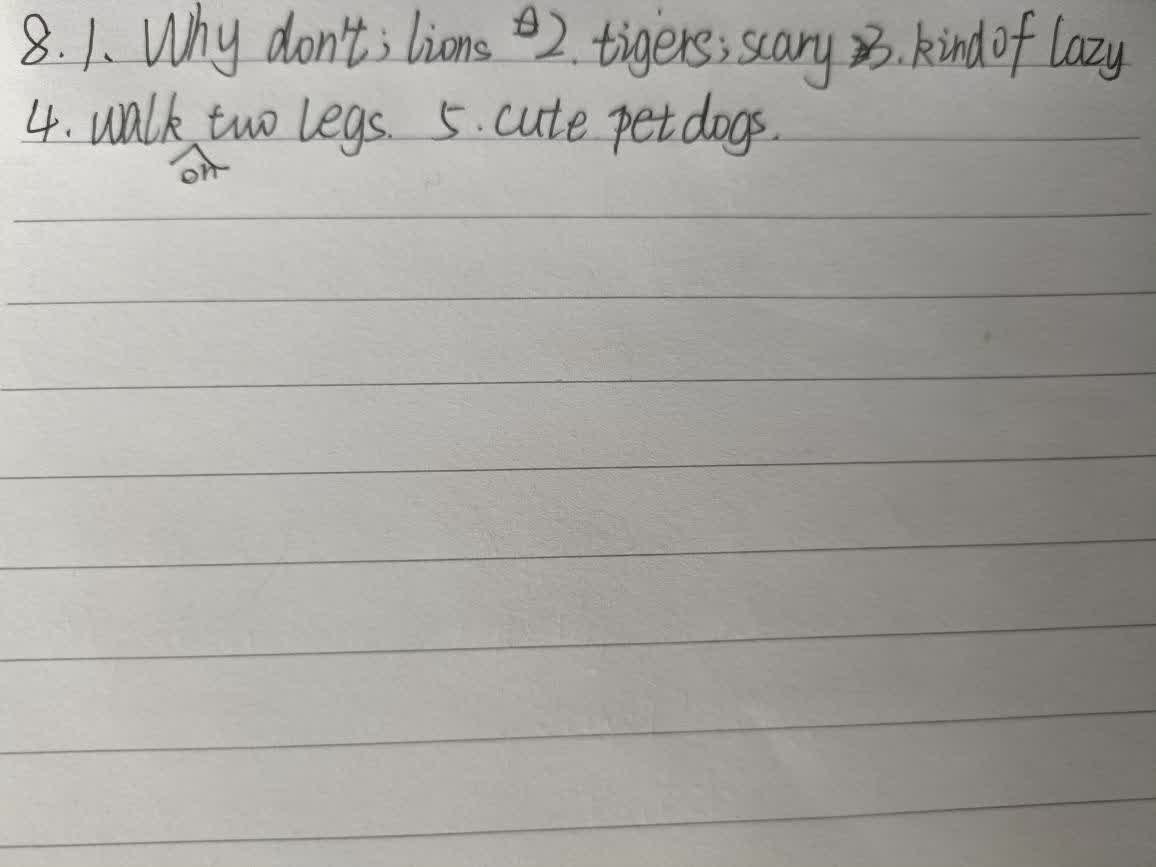 8. 1. Why don't; lions 2. tigers; scary 3. kind of lazy
4. walk on two legs. 5. cute pet dogs.